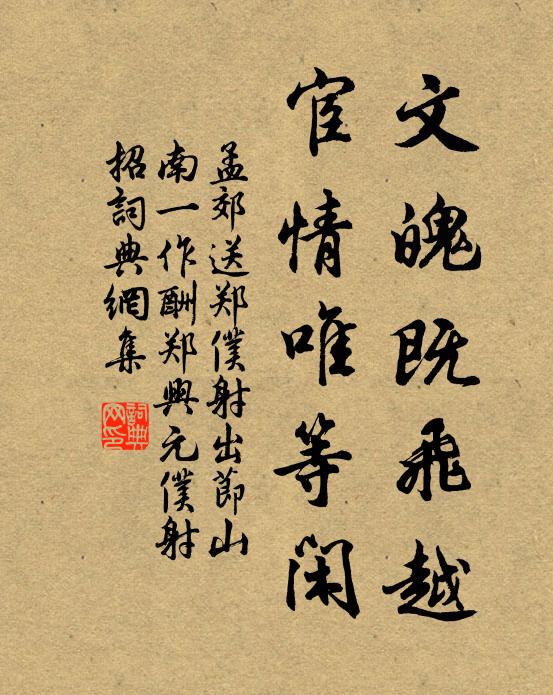 文魄既飛越
宦情唯等閑
孟郊送郑僕射出節山
南一作酬郑興元僕射
招詞典網集
詞典网印